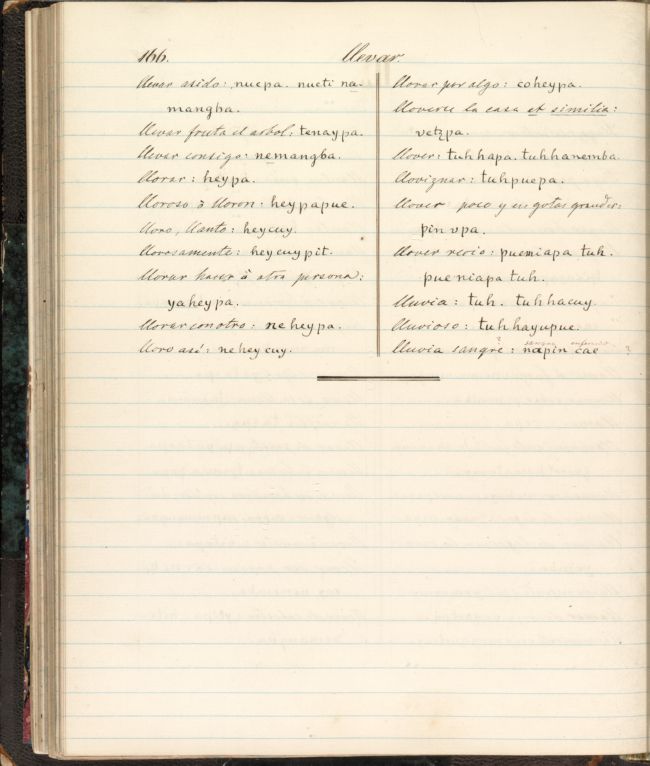 166.
llevar.
llevar asido: nucpa. nucti na-
mangba.
llevar fruta el arbol: tenaypa.
llevar consigo: nemangba.
llorar: heypa.
lloroso ò lloron: heypapue.
lloro, llanto: heycuy.
llorosamente: heycuypit.
llorar hacer à otra persona:
yaheypa.
llorar con otro: neheypa.
lloro asi: neheycuy.
llorar por algo: coheypa.
lloverse la casa et similia:
vetzpa.
llover: tuhhapa. tuhhanemba.
lloviznar: tuhpuepa.
llover poco y en gotas grandes:
pinvpa.
llover recio: puemiapa tuh.
pueniapa tuh.
lluvia: tuh. tuhhacuy.
lluvioso: tuhhayupue.
? sangre enfermo
lluvia sangre: nœpin cae ?